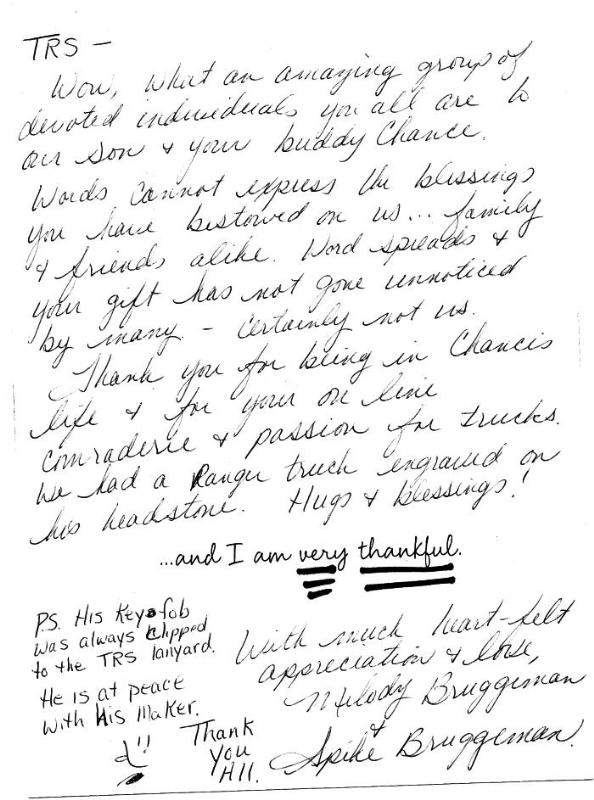 TRS -
Wow, what an amazing group of
devoted individuals you all are to
our son & your buddy Chance.
Words cannot express the blessings
you have bestowed on us... family
& friends alike. Word spreads &
your gift has not gone unnoticed
by many - certainly not us.
Thank you for being in Chance's
life & for your on line
comraderie & passion for trucks.
We had a Ranger truck engraved on
his headstone. Hugs & blessings!
...and I am very thankful.
P.S. His Key fob
was always clipped
to the TRS lanyard.
He is at peace
with His Maker.
Thank
You
All.
With much heart-felt
appreciation & love,
Melody Bruggeman
&
Spike Bruggeman.